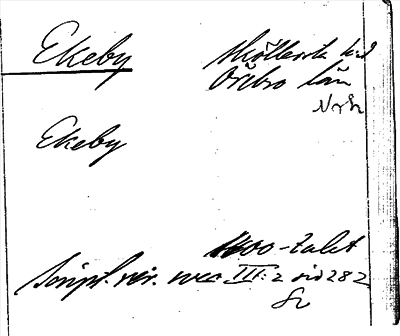 Ekeby Sköllersta hd
Örebro län
Nrk
Ekeby
1400-talet
Script. rer. svec III:2 sid 282